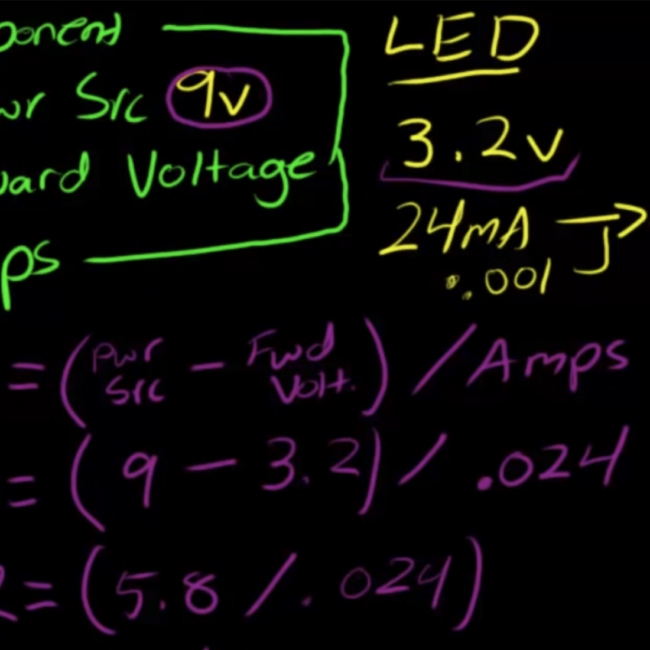 ponent
LED
wr Src 9v
3.2v
ward Voltage
24mA
ps
.001
= (Pwr Src - Fwd Volt.) / Amps
= (9 - 3.2) / .024
R = (5.8 / .024)